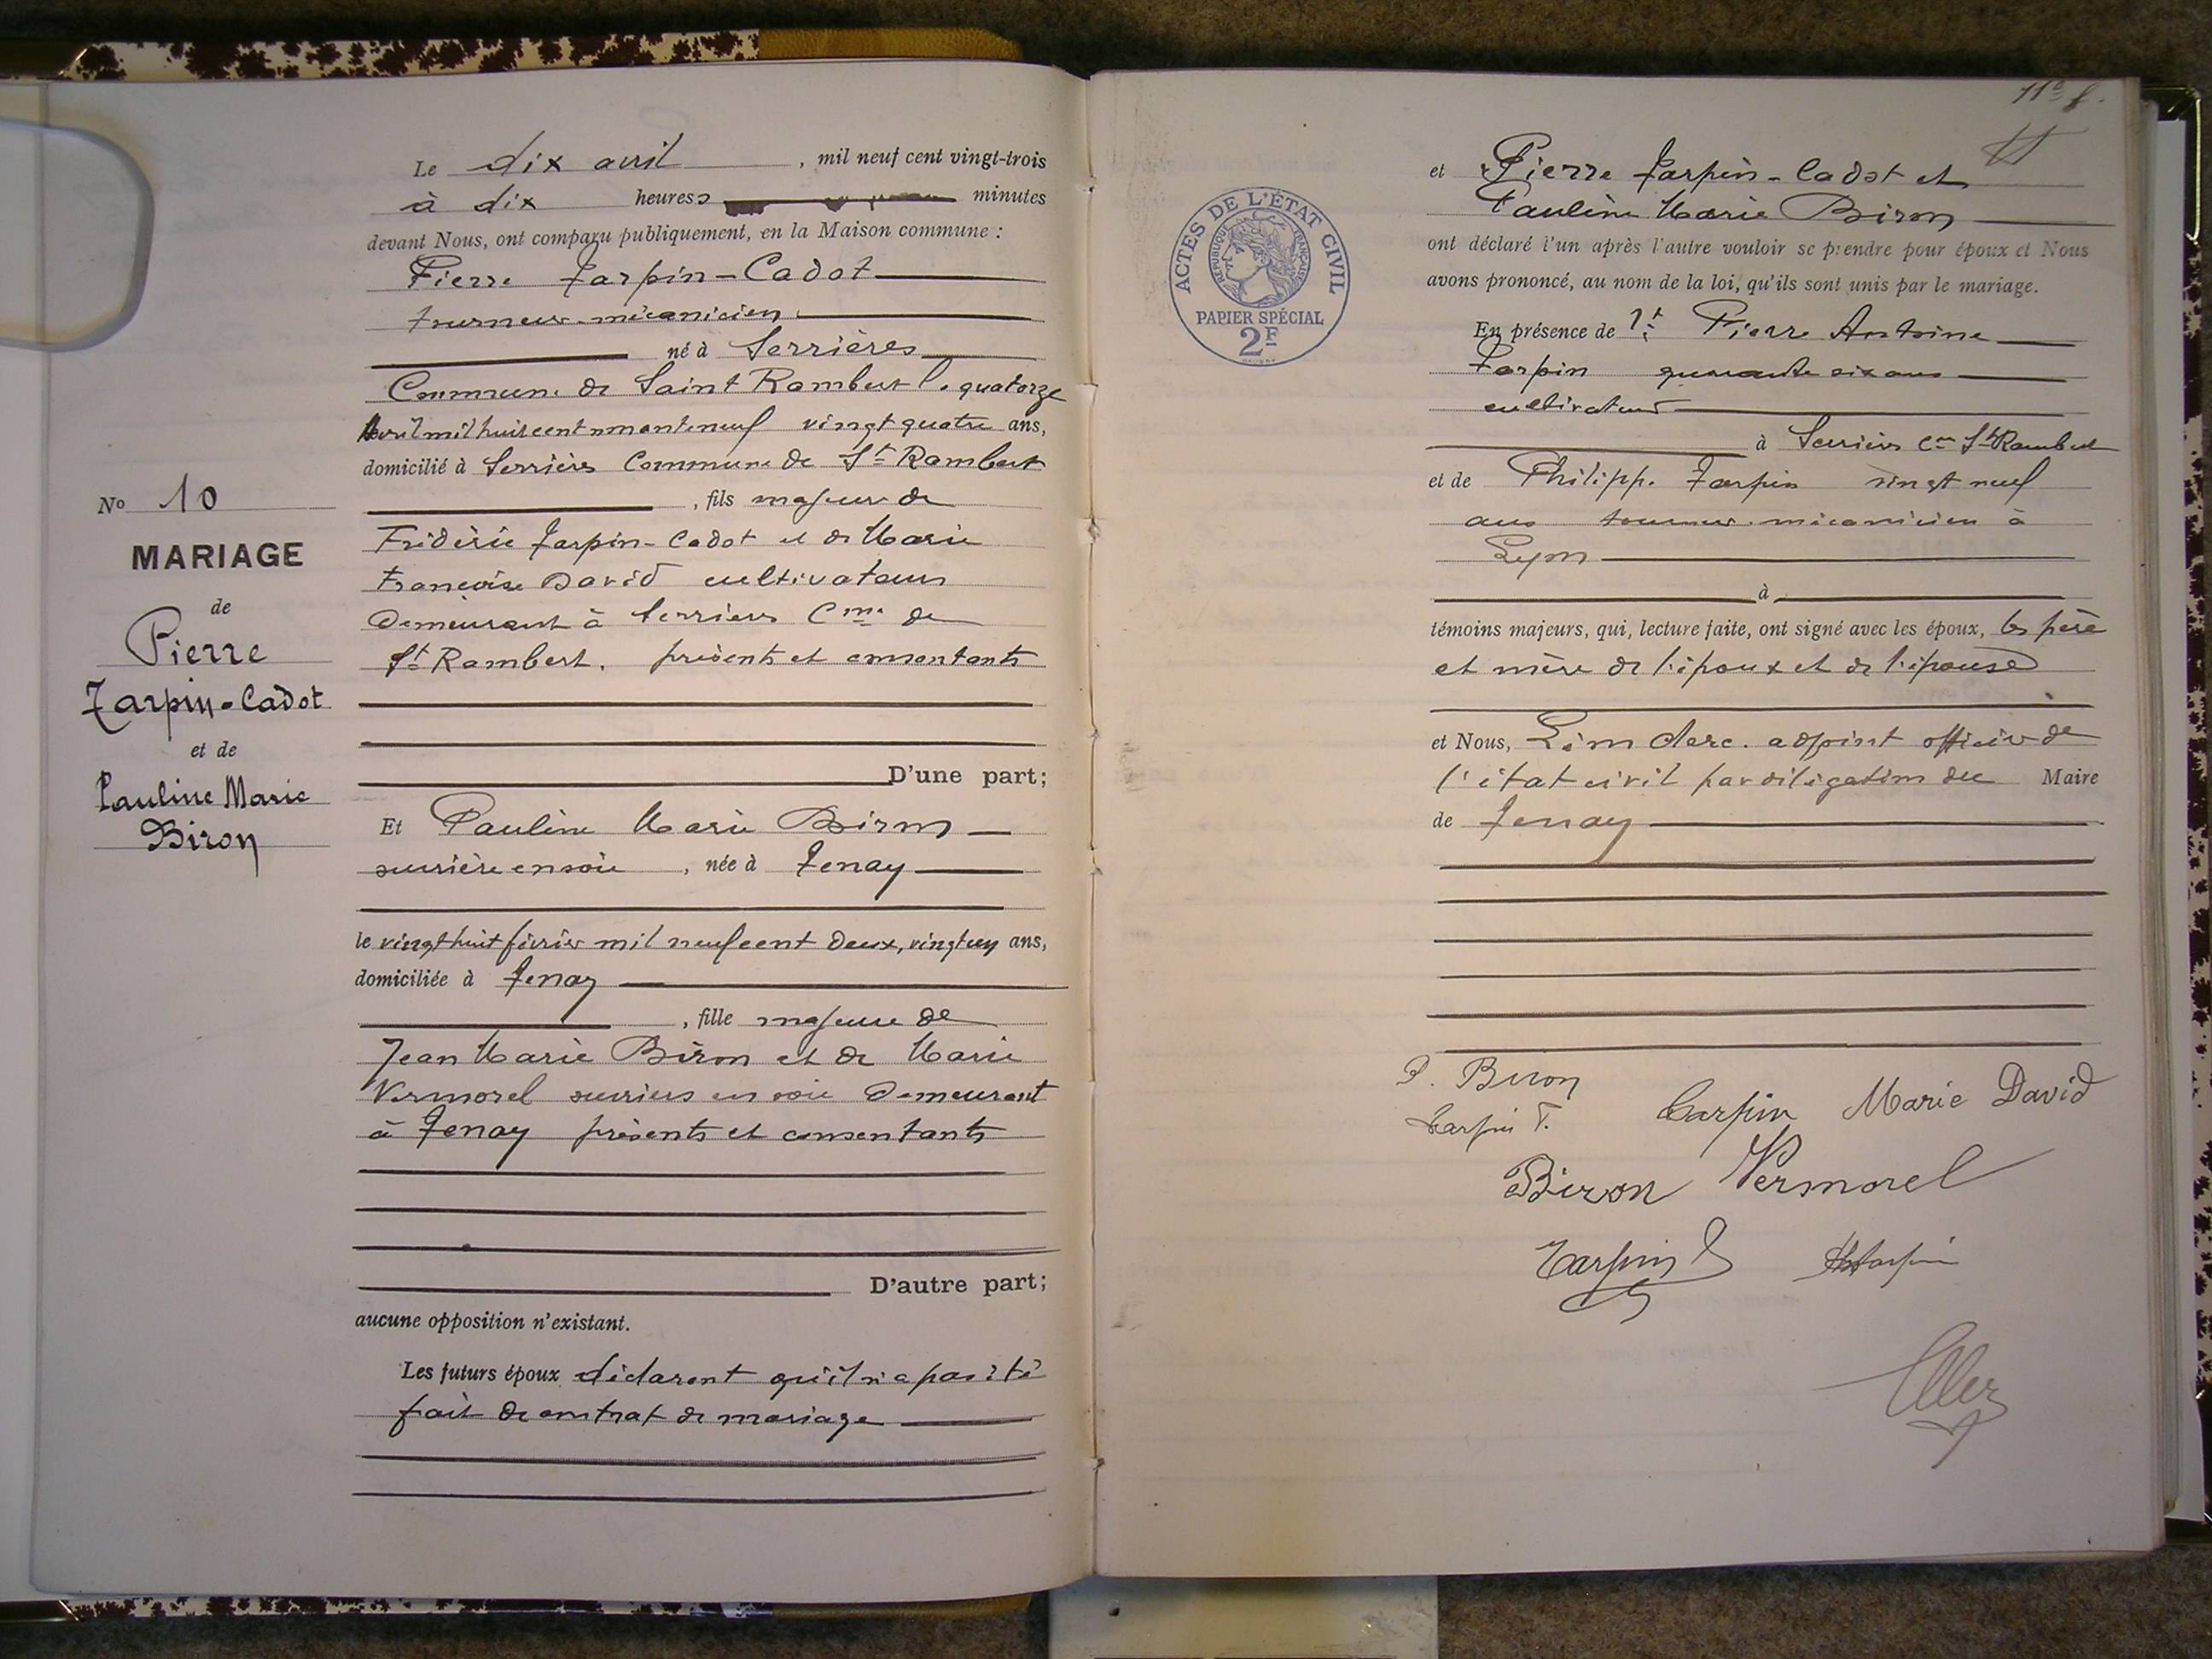 Le dix avril , mil neuf cent vingt-trois
à dix heures minutes
devant Nous, ont comparu publiquement, en la Maison commune :
Pierre Tarpin-Cadot
tourneur-mécanicien
né à Serrières
Commune de Saint Rambert le quatorze
avril mil huit cent nonante neuf vingt quatre ans,
domicilié à Serrières Commune de St Rambert
, fils majeur de
Frédéric Tarpin-Cadot et de Marie
Françoise David cultivateurs
demeurant à Serrières Cme de
St Rambert, présents et consentants
D'une part;
No 10
MARIAGE
de
Pierre
Tarpin-Cadot
et de
Pauline Marie
Biron
Et Pauline Marie Biron
ouvrière en soie , née à Tenay
le vingt huit février mil neuf cent deux, vingt un ans,
domiciliée à Tenay
, fille majeure de
Jean Marie Biron et de Marie
Vermorel ouvriers en soie demeurant
à Tenay présents et consentants
D'autre part;
aucune opposition n'existant.
Les futurs époux déclarent qu'il n'a pas été
fait de contrat de mariage
11e f.
11
ACTES DE L'ÉTAT CIVIL
RÉPUBLIQUE FRANÇAISE
PAPIER SPÉCIAL
2F
et Pierre Tarpin-Cadot et
Pauline Marie Biron
ont déclaré l'un après l'autre vouloir se prendre pour époux et Nous
avons prononcé, au nom de la loi, qu'ils sont unis par le mariage.
En présence de Pierre Antoine
Tarpin quarante six ans
cultivateur
à Serrières Cne St Rambert
et de Philippe Tarpin vingt neuf
ans tourneur-mécanicien à
Lyon
à
témoins majeurs, qui, lecture faite, ont signé avec les époux, les père
et mère de l'époux et de l'épouse
et Nous, adjoint officier de
l'état civil par délégation du Maire
de Tenay
P. Biron
Tarpin Marie David
Tarpin
Biron Vermorel
Tarpin